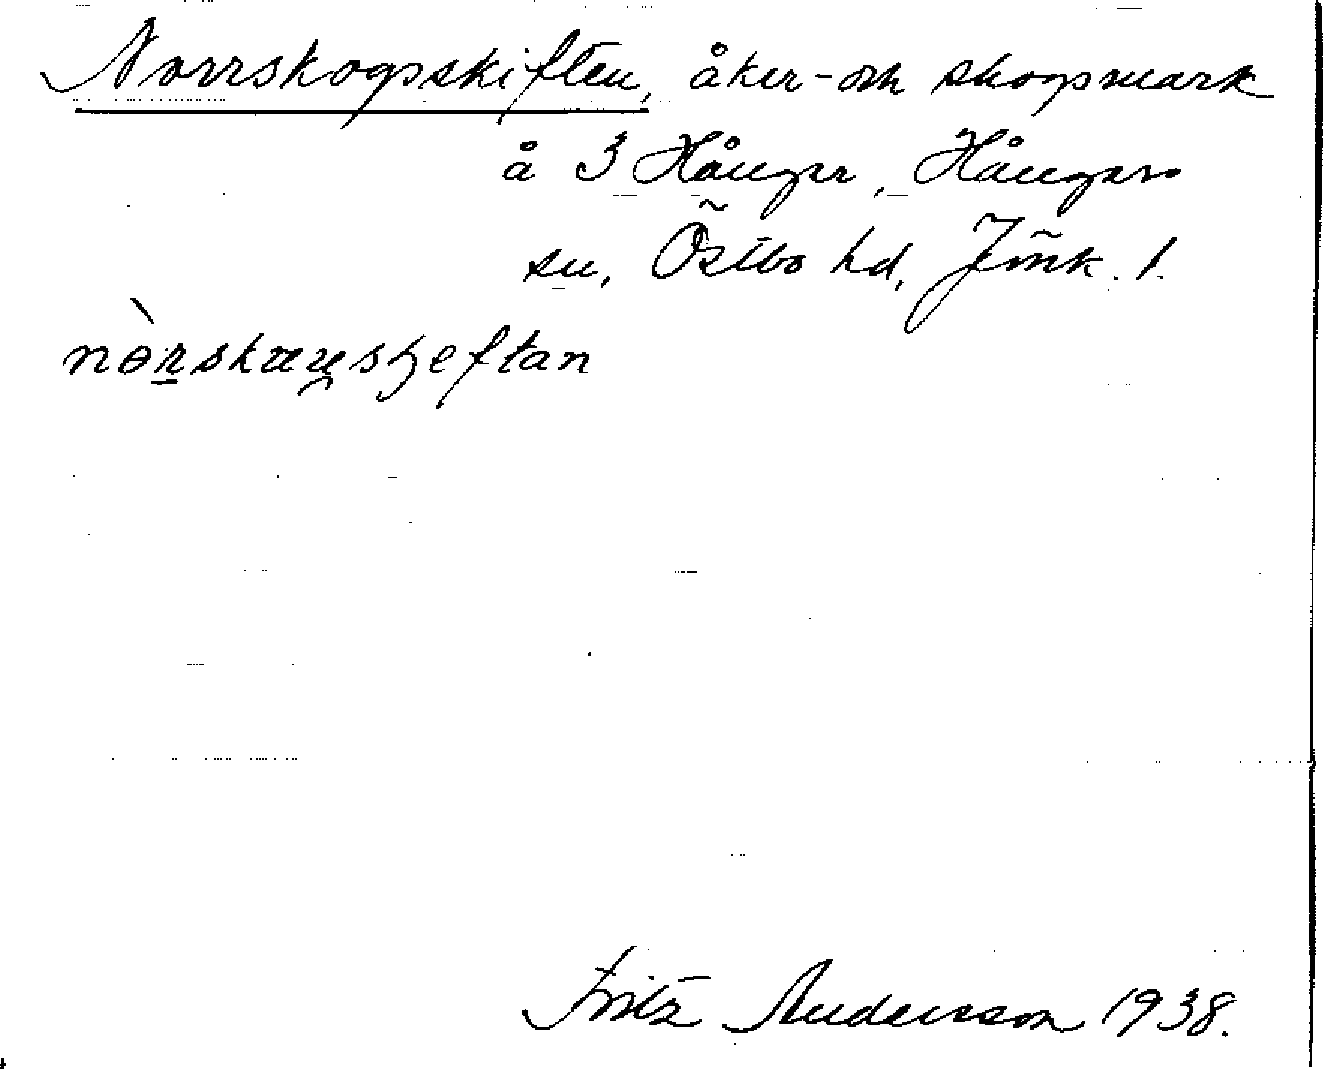 Norrskogsskiften, åker- och skogsmark
å 3 Hånger, Hångers
sn, Östbo hd, Jönk. l.
nòrskæɡsʃeftan
Fritz Andersson 1938.